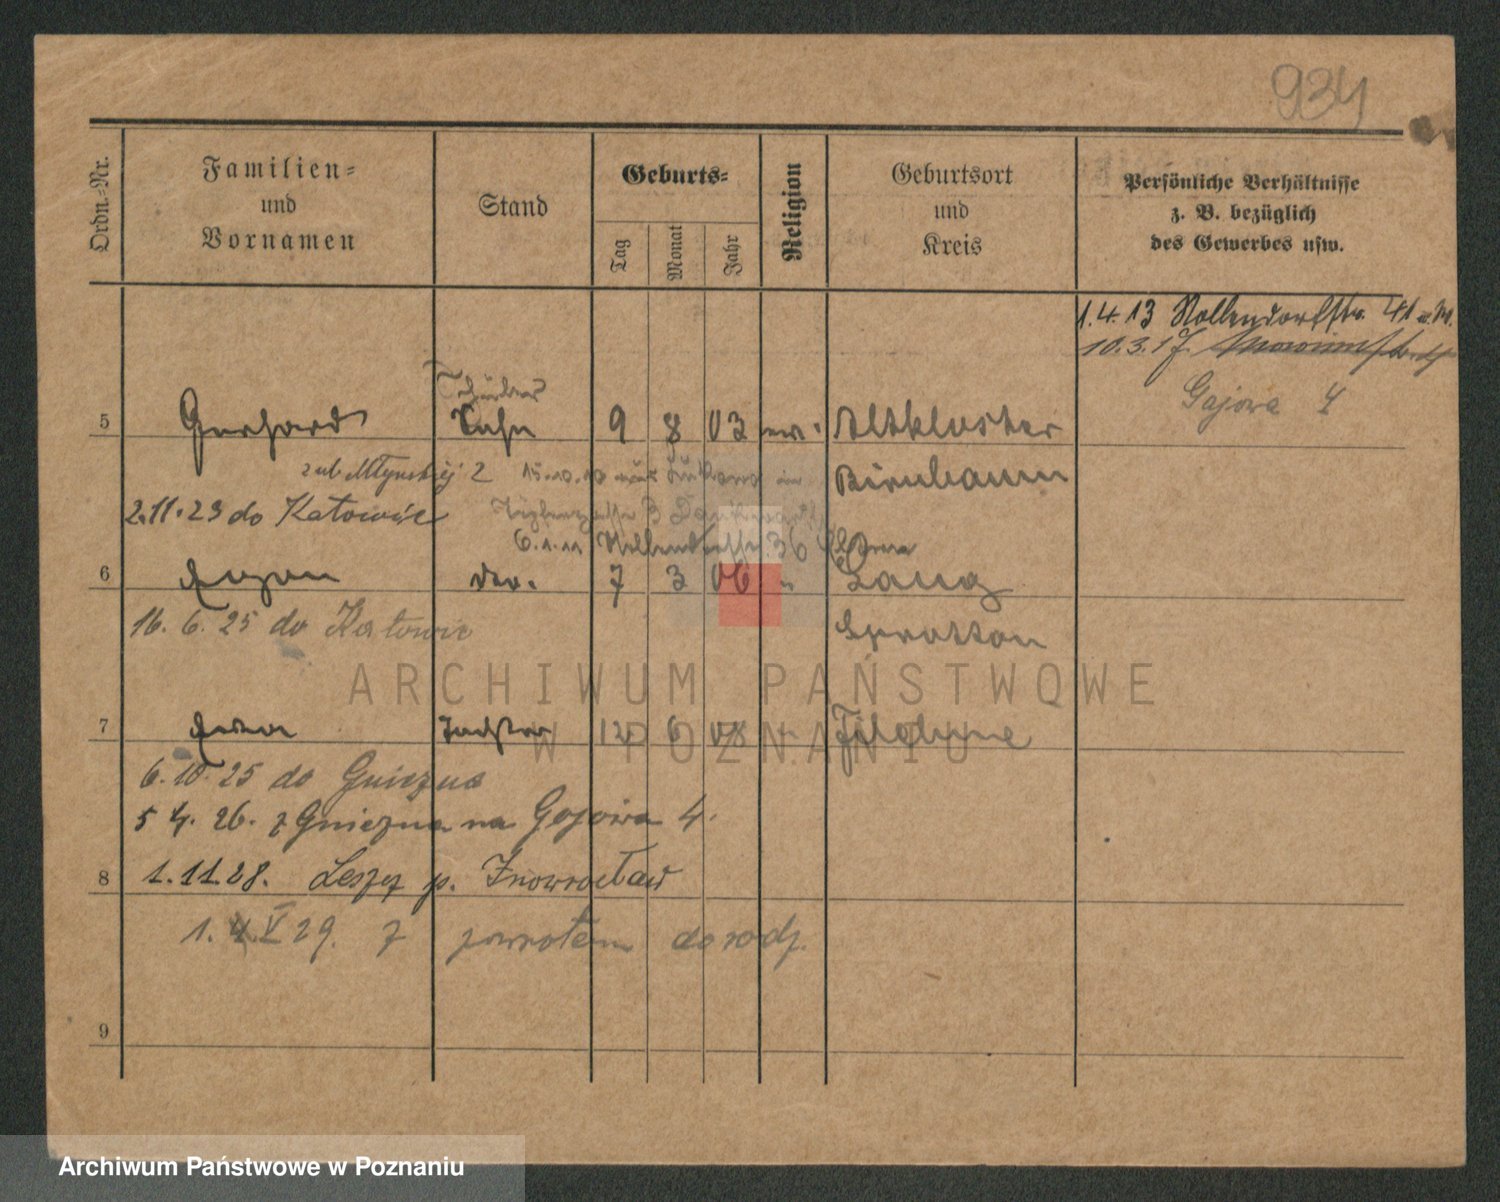 934
Ordn.-Nr.
Familien-
und
Vornamen
Stand
Geburts-
Tag
Monat
Jahr
Religion
Geburtsort
und
Kreis
Persönliche Verhältnisse
z. B. bezüglich
des Gewerbes usw.
1.4.13 Nollendorfstr. 41
10.3.17
Gajowa 4
5 Gerhard Sohn 9 8 03 ev. Altkloster
z ul. Młyńskiej 2 15.10.10 in
Birnbaum
2.11.23 do Katowic
6.1.11 36
6 7 3 06 " Lang
16. 6. 25 do Katowic
Sprottau
7 Erna Tochter 12 6 08 " Filehne
6. 10. 25 do Gniezna
5 4. 26. z Gniezna na Gajowa 4.
8 1.11.28. Leszcz p. Inowrocław
1. V 29. z powrotem do rodz.
9
ARCHIWUM PAŃSTWOWE
W POZNANIU
Archiwum Państwowe w Poznaniu